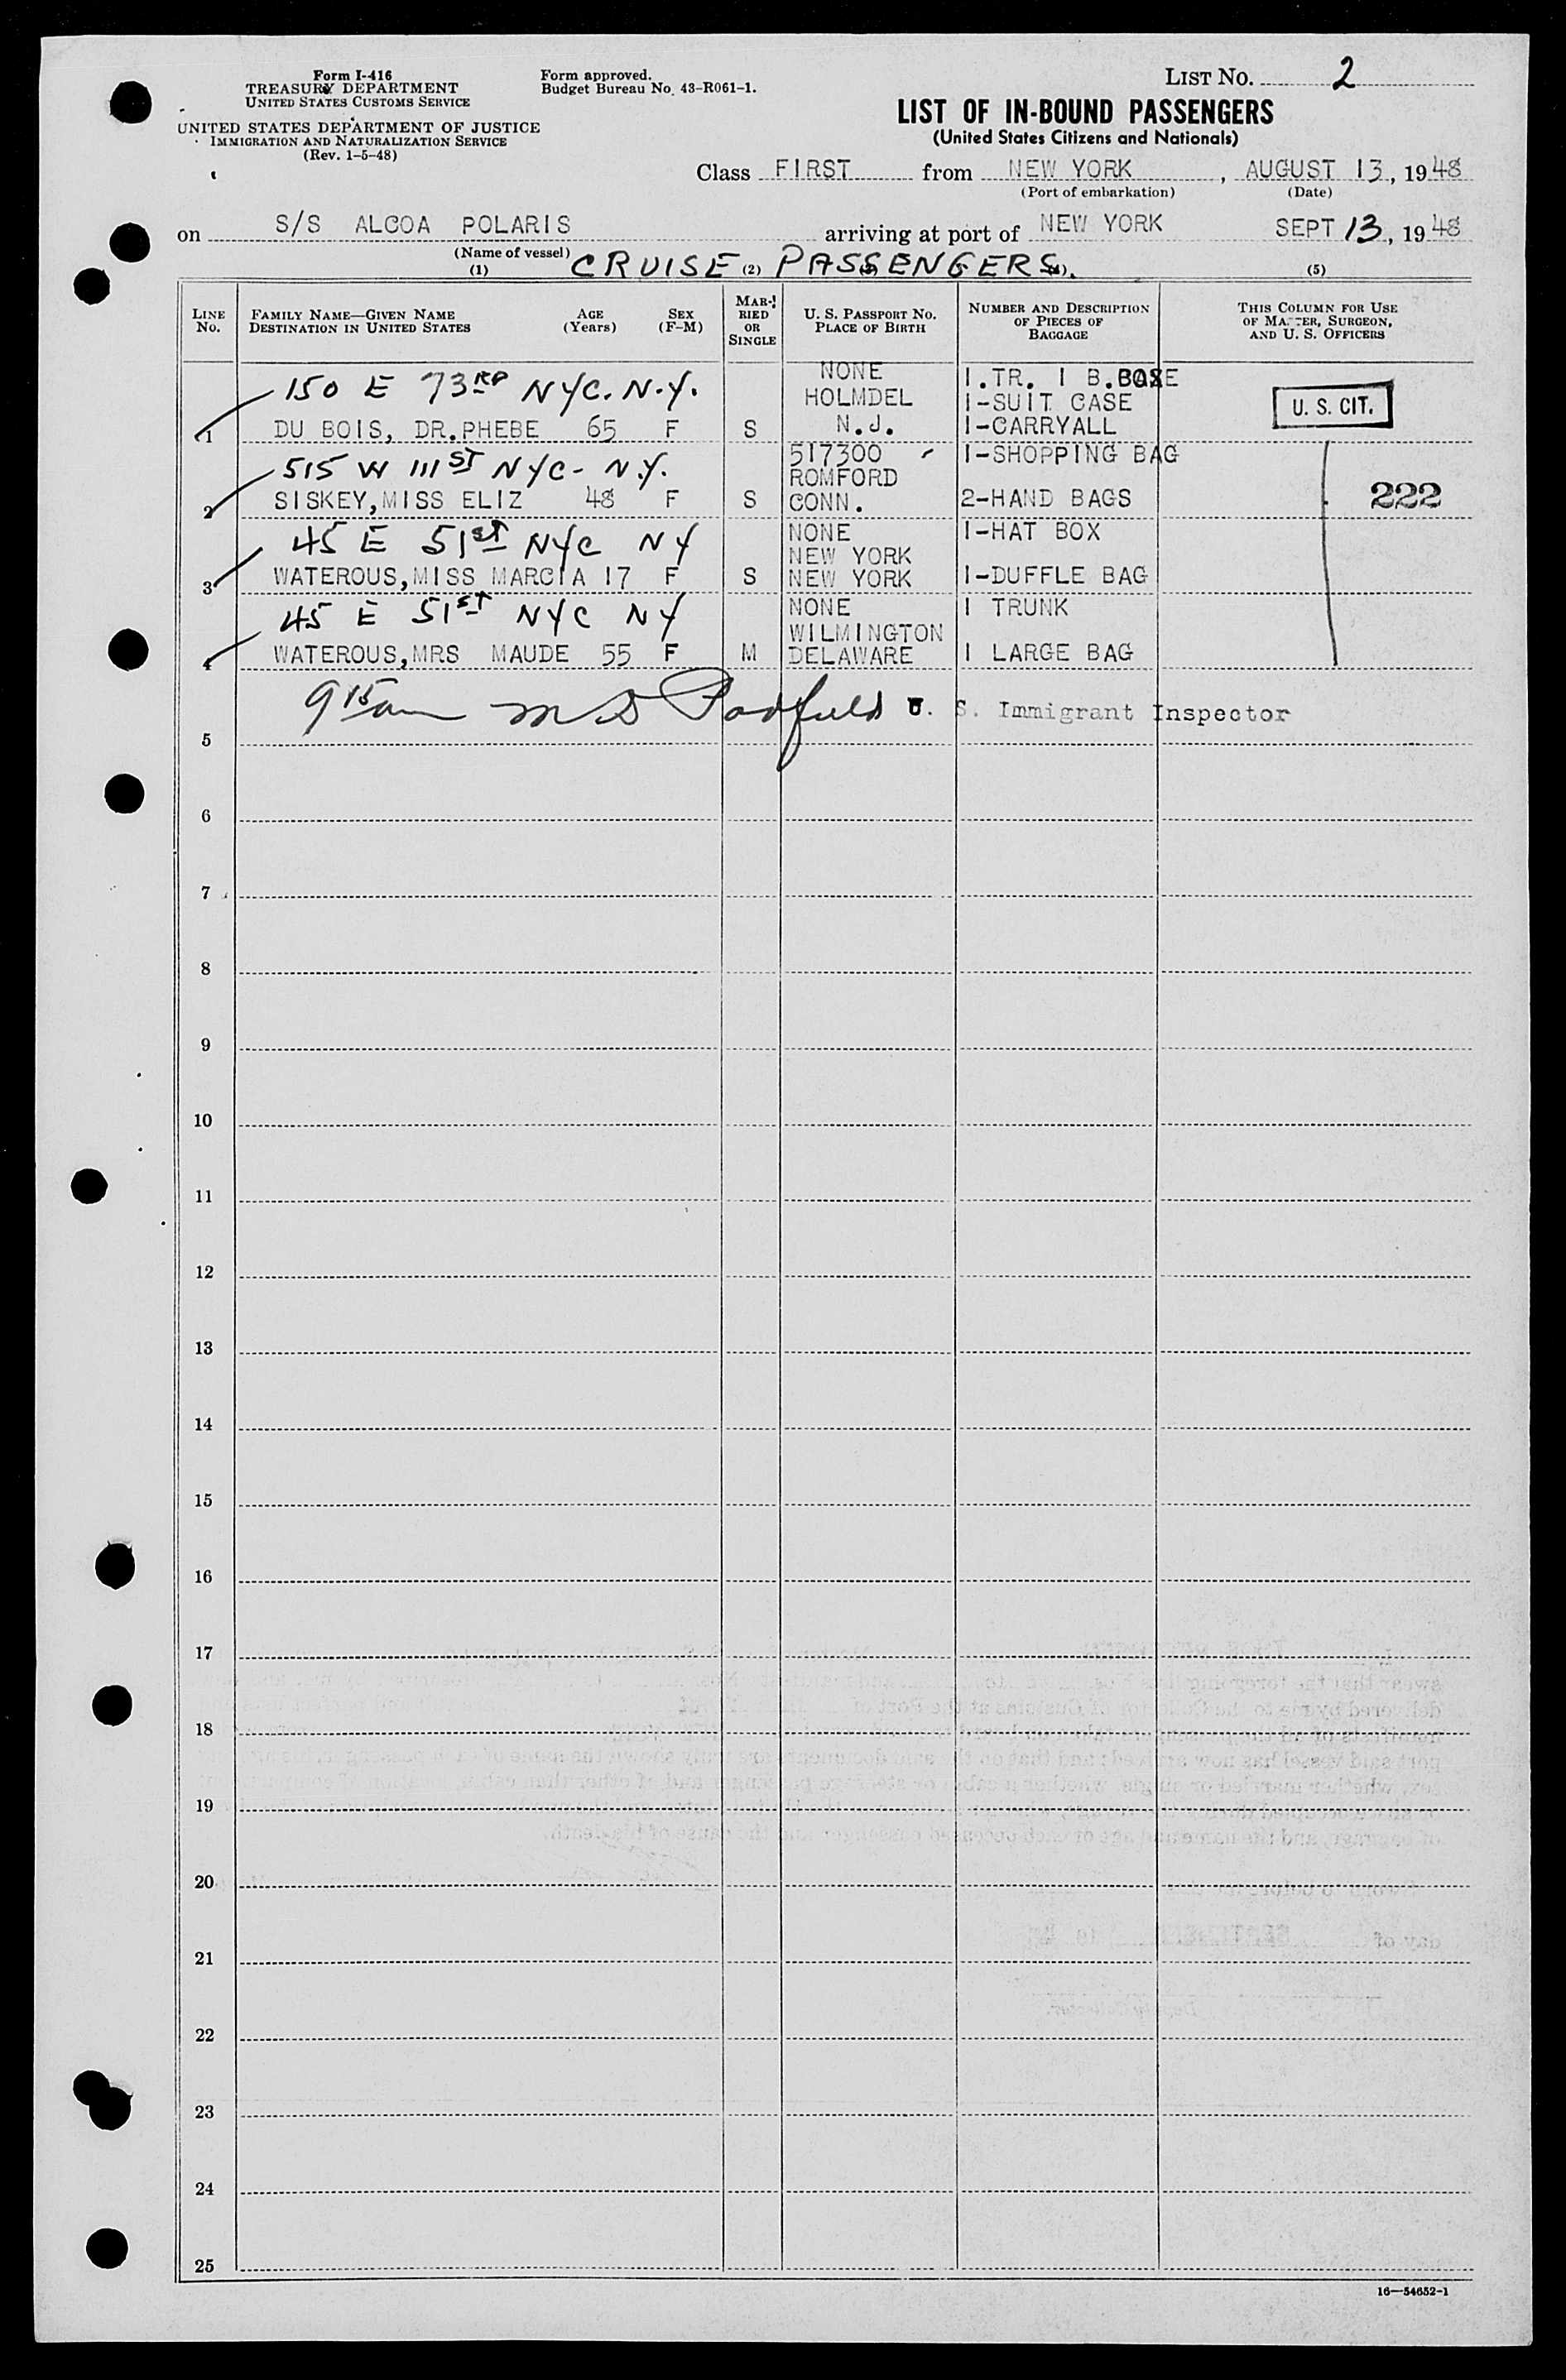 Form I-416
TREASURY DEPARTMENT
UNITED STATES CUSTOMS SERVICE
UNITED STATES DEPARTMENT OF JUSTICE
IMMIGRATION AND NATURALIZATION SERVICE
(Rev. 1-5-48)
Form approved.
Budget Bureau No. 43-R061-1.
LIST NO. 2
LIST OF IN-BOUND PASSENGERS
(United States Citizens and Nationals)
Class FIRST from NEW YORK, AUGUST 13, 1948
(Port of embarkation) (Date)
on S/S ALCOA POLARIS arriving at port of NEW YORK SEPT 13, 1948
(Name of vessel)
CRUISE PASSENGERS.
(1) (2) (5)
LINE NO.
FAMILY NAME—GIVEN NAME
DESTINATION IN UNITED STATES
AGE (Years)
SEX (F-M)
MARRIED OR SINGLE
U. S. PASSPORT NO.
PLACE OF BIRTH
NUMBER AND DESCRIPTION OF PIECES OF BAGGAGE
THIS COLUMN FOR USE OF MASTER, SURGEON, AND U. S. OFFICERS
150 E 73RD NYC. N.Y. NONE 1.TR. 1 B.
HOLMDEL 1-SUIT CASE U. S. CIT.
1 DU BOIS, DR.PHEBE 65 F S N.J. 1-CARRYALL
515 W 111ST NYC- N.Y. 517300 1-SHOPPING BAG
ROMFORD
2 SISKEY,MISS ELIZ 48 F S CONN. 2-HAND BAGS 222
45 E 51ST NYC NY NONE 1-HAT BOX
NEW YORK
3 WATEROUS,MISS MARCIA 17 F S NEW YORK 1-DUFFLE BAG
45 E 51ST NYC NY NONE 1 TRUNK
WILMINGTON
4 WATEROUS,MRS MAUDE 55 F M DELAWARE 1 LARGE BAG
915am M D Padfield U. S. Immigrant Inspector
5
6
7
8
9
10
11
12
13
14
15
16
17
18
19
20
21
22
23
24
25
16—54652-1